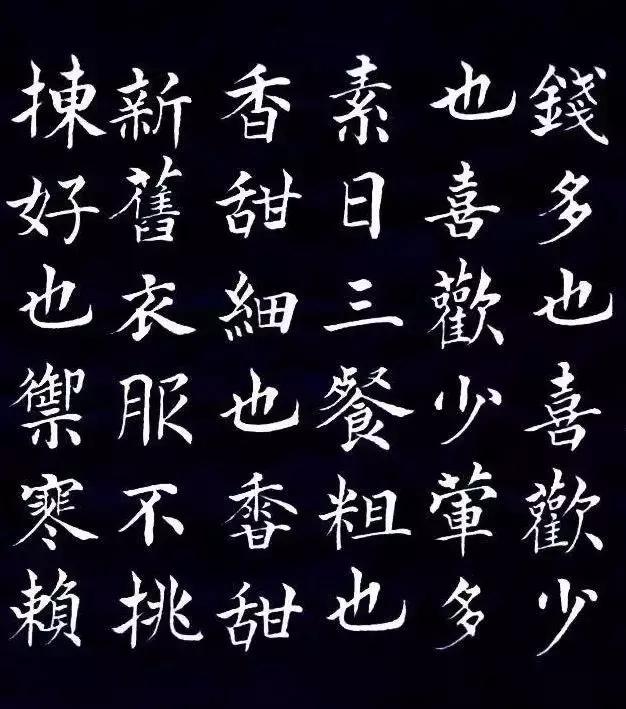 錢多也喜歡少
也喜歡少葷多
素日三餐粗也
香甜細也香甜
新舊衣服不挑
揀好也禦寒賴